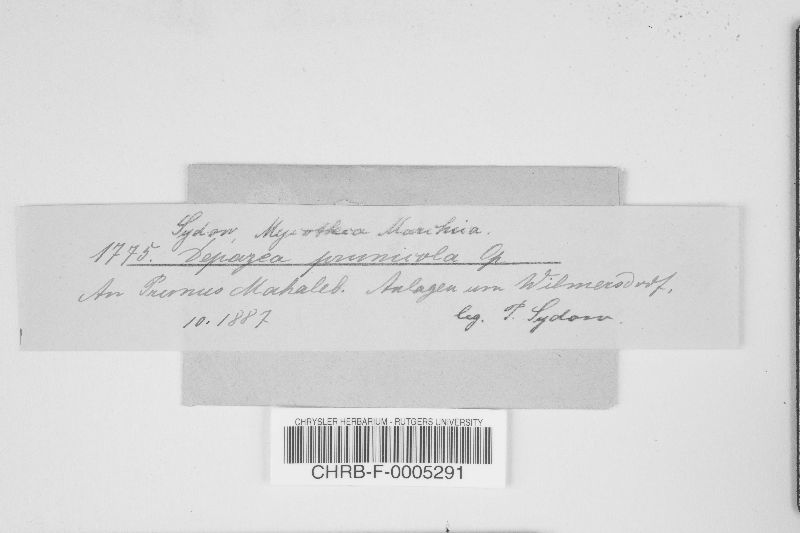 Sydow, Mycotheca Marchica.
1775. Depázea prunicola Op
An Prunus Mahaleb. Anlagen um Wilmersdorf.
10. 1887 leg. P. Sydow.
CHRYSLER HERBARIUM - RUTGERS UNIVERSITY
CHRB-F-0005291